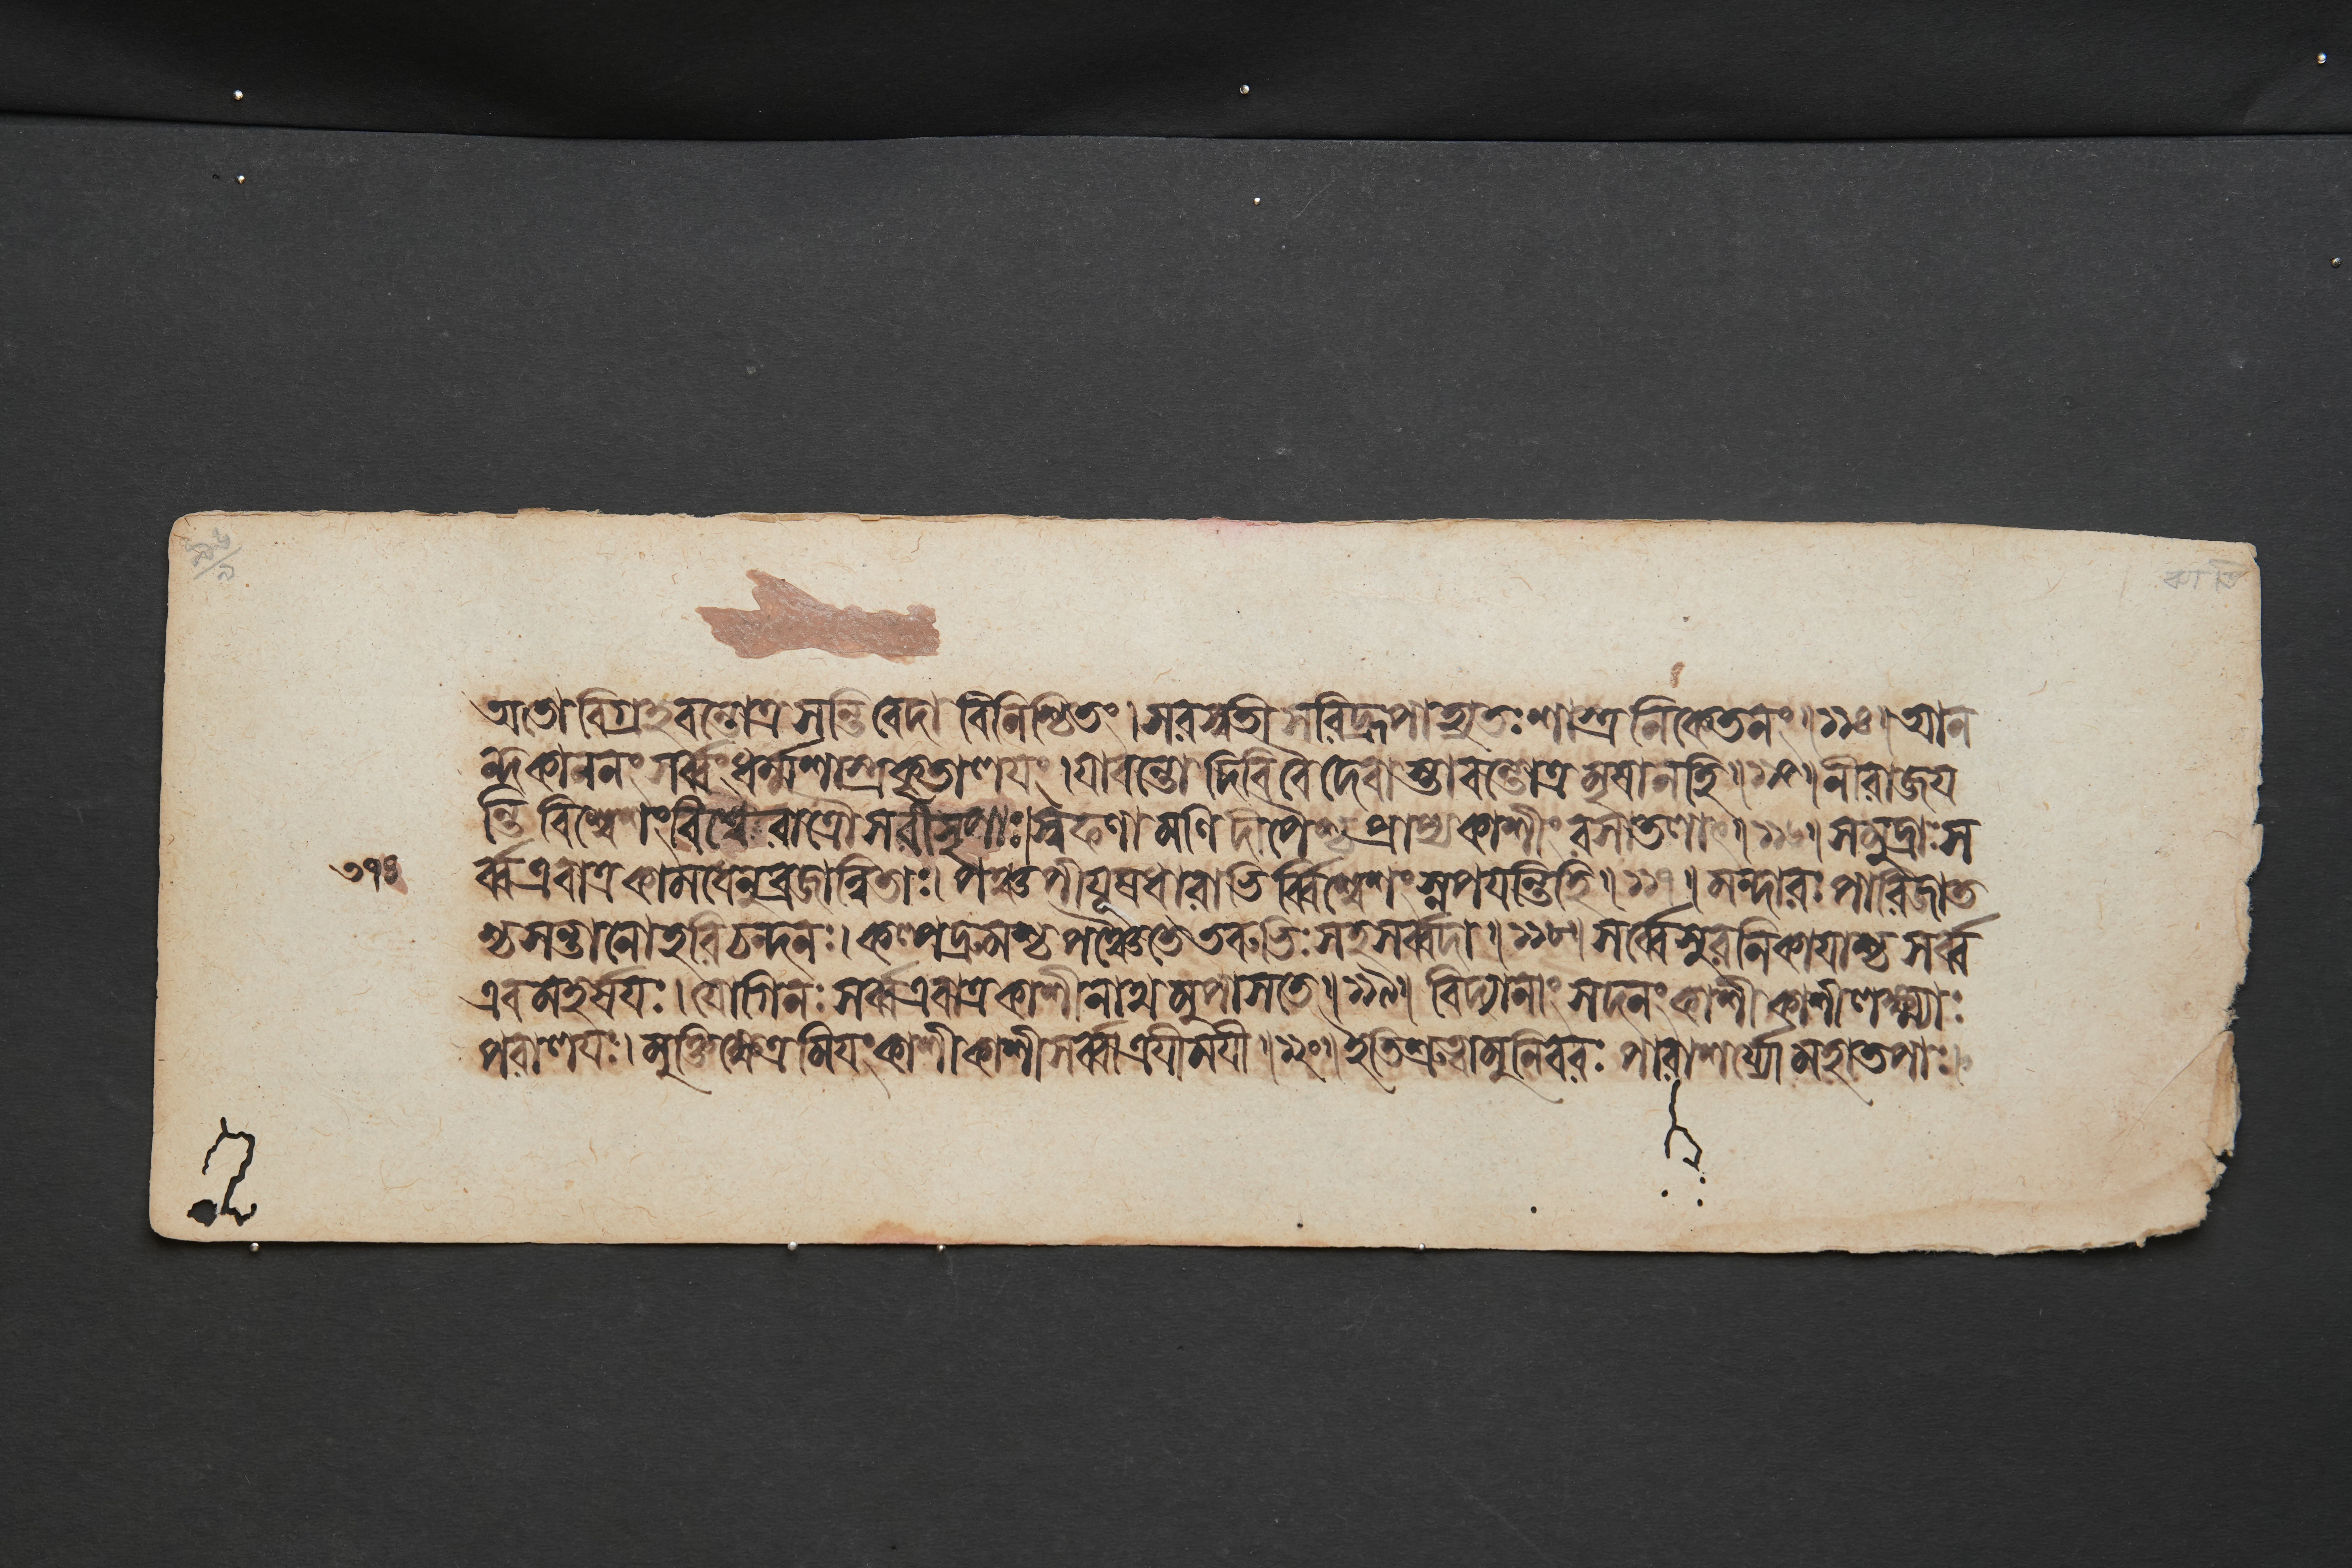 অতো বিগ্রহবন্তোত্র সন্তি বেদা বিনিশ্চিতং।সরস্বতী সরিদ্রূপাহ্যতঃশাস্ত্র নিকেতনং॥১১৪॥আন
ন্দকাননং সর্ব্বংধর্ম্মশাস্ত্রকৃতালযং।যাবন্তো দিবিবৈ দেবাস্তাবন্তোত্র মৃষানহি॥১১৫॥নীরাজয
ন্তি বিশ্বেশং বিশ্বে রাত্রৌ সরীসৃপাঃ।স্বফণামণিদীপৈশ্চ প্রাপ্যকাশীং রসাতলাৎ॥১১৬॥সমুদ্রাঃস
৩৭৪
র্ব্বএবাত্রকামধেনুব্রজান্বিতাঃ। পঞ্চপীযূষধারাভির্ব্বিশ্বেশংস্নপযন্তিহি॥১১৭॥মন্দারঃ পারিজাত
শ্চসন্তানোহরিচন্দনঃ।কল্পদ্রুমশ্চপঞ্চৈতেতরুভিঃসহসর্ব্বদা॥১১৮॥সর্ব্বেসুরনিকাযাশ্চসর্ব্ব
এবমহর্ষযঃ।যোগিনঃ সর্ব্বএবাত্রকাশীনাথমুপাসতে॥১১৯॥ বিদ্যানাং সদনংকাশী কাশীলক্ষ্ম্যাঃ
পরালযঃ।মুক্তিক্ষেত্রমিযংকাশীকাশীসর্ব্বাত্রযীমযী॥১২০॥ইতিশ্রুত্বামুনিবরঃ পারাশর্য্যোমহাতপাঃ।